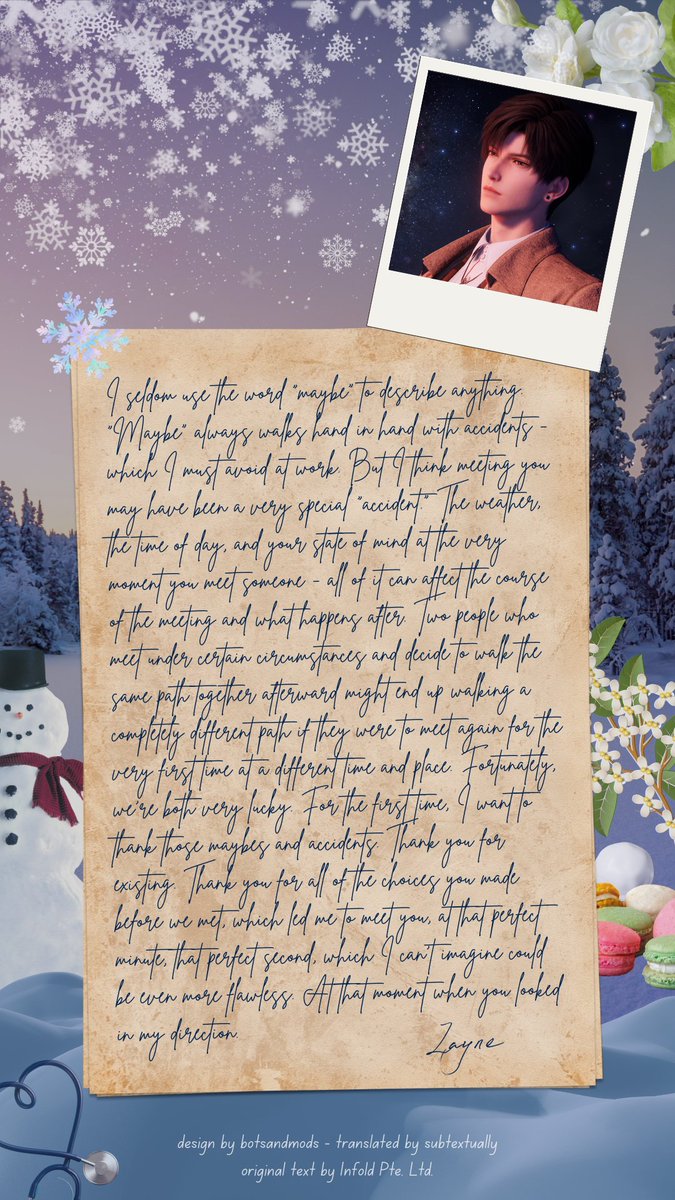 I seldom use the word "maybe" to describe anything.
"Maybe" always walks hand in hand with accidents -
which I must avoid at work. But I think meeting you
may have been a very special "accident." The weather,
the time of day, and your state of mind at the very
moment you meet someone - all of it can affect the course
of the meeting and what happens after. Two people who
meet under certain circumstances and decide to walk the
same path together afterward might end up walking a
completely different path if they were to meet again for the
very first time at a different time and place. Fortunately,
we're both very lucky. For the first time, I want to
thank those maybes and accidents. Thank you for
existing. Thank you for all of the choices you made
before we met, which led me to meet you, at that perfect
minute, that perfect second, which I can't imagine could
be even more flawless. At that moment when you looked
in my direction.
Zayne
design by botsandmods - translated by subtextually
original text by Infold Pte. Ltd.